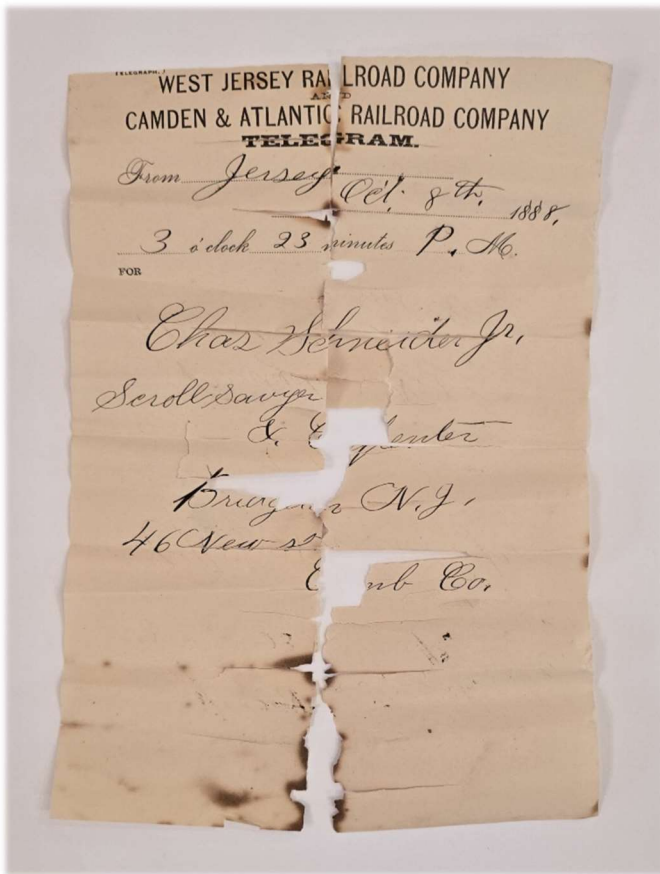 (TELEGRAPH.)
WEST JERSEY RAILROAD COMPANY
AND
CAMDEN & ATLANTIC RAILROAD COMPANY
TELEGRAM.
From Jersey Oct. 8th. 1888,
3 o'clock 23 minutes P. M.
FOR
Chas Schneider Jr.
Scroll Sawyer
&
N. J.
46 New
Co.